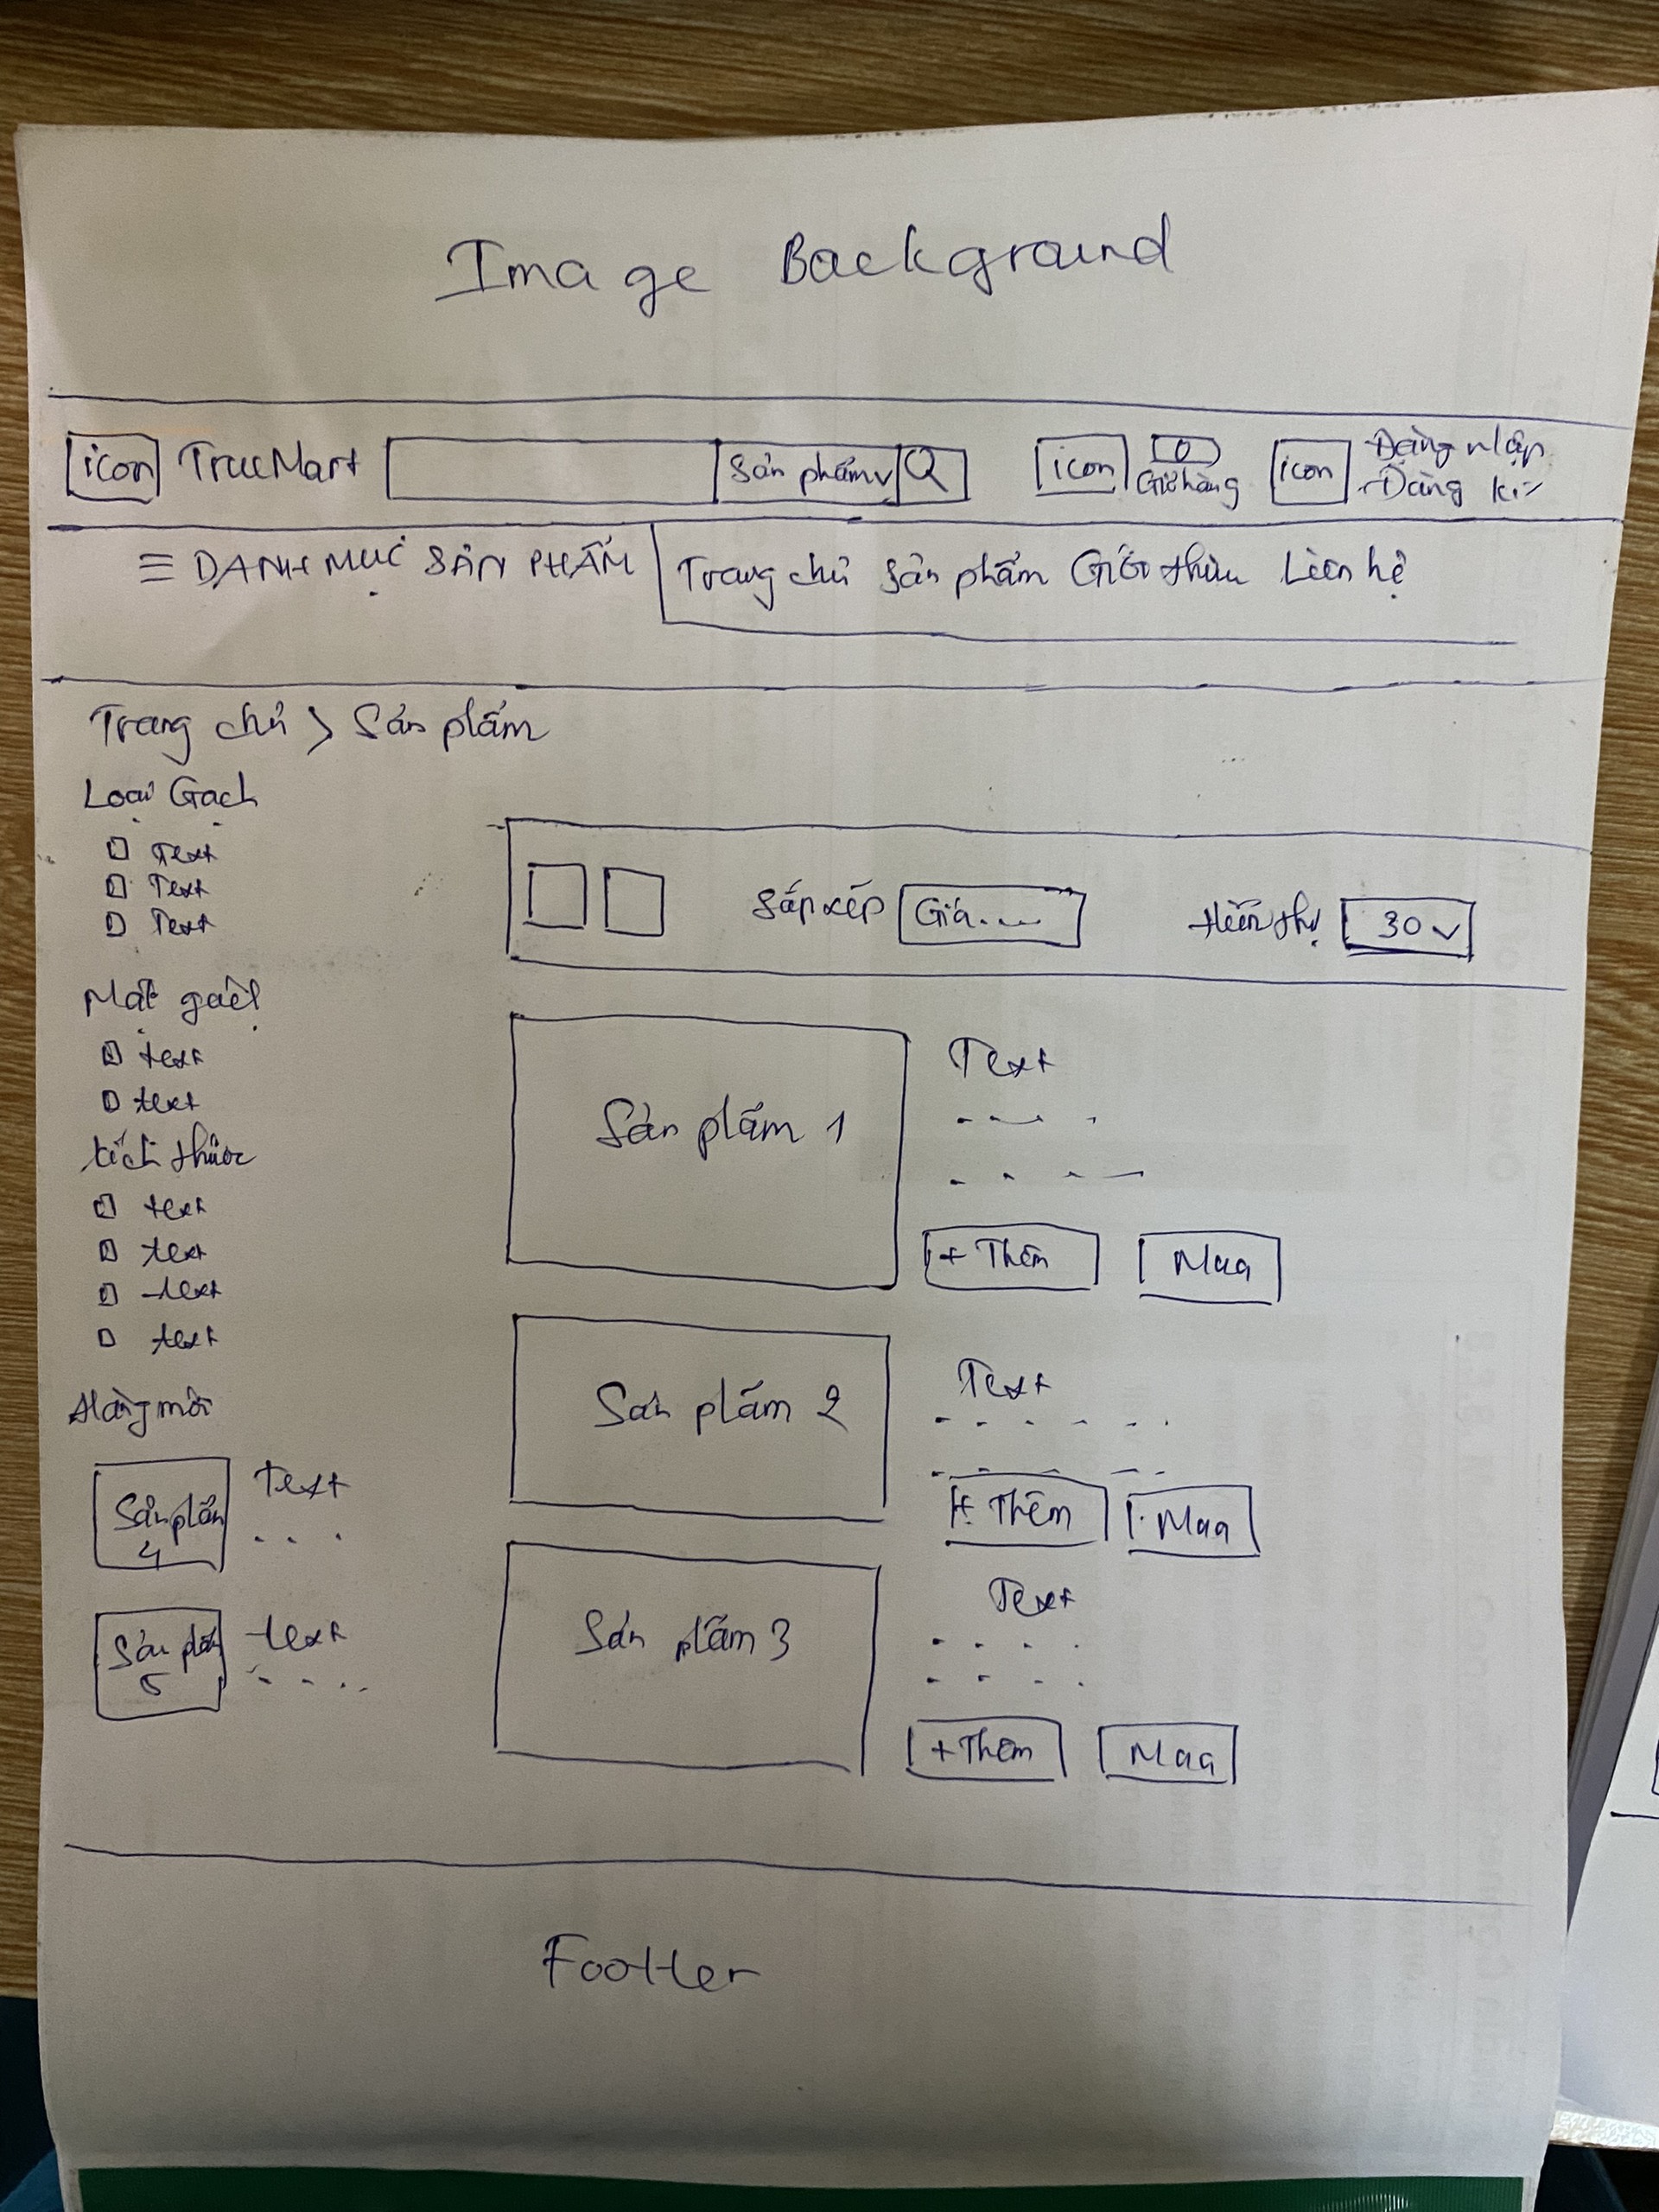 Image Background
icon TrucMart Sản phẩm v icon 0 Giỏ hàng icon Đăng nhập
Đăng kí
≡ DANH MỤC SẢN PHẨM Trang chủ Sản phẩm Giới thiệu Liên hệ
Trang chủ > Sản phẩm
Loại Gạch
Text
Text
Text
Sắp xếp Giá.... Hiển thị 30 v
Mặt gạch
text
text
Kích thước
text
text
text
text
Sản phẩm 1
Text
+ Thêm Mua
Sản phẩm 2
Text
+ Thêm Mua
Hàng mới
Sản phẩm 4
Text
...
Sản phẩm 5
text
....
Sản phẩm 3
Text
+ Thêm Mua
Footter